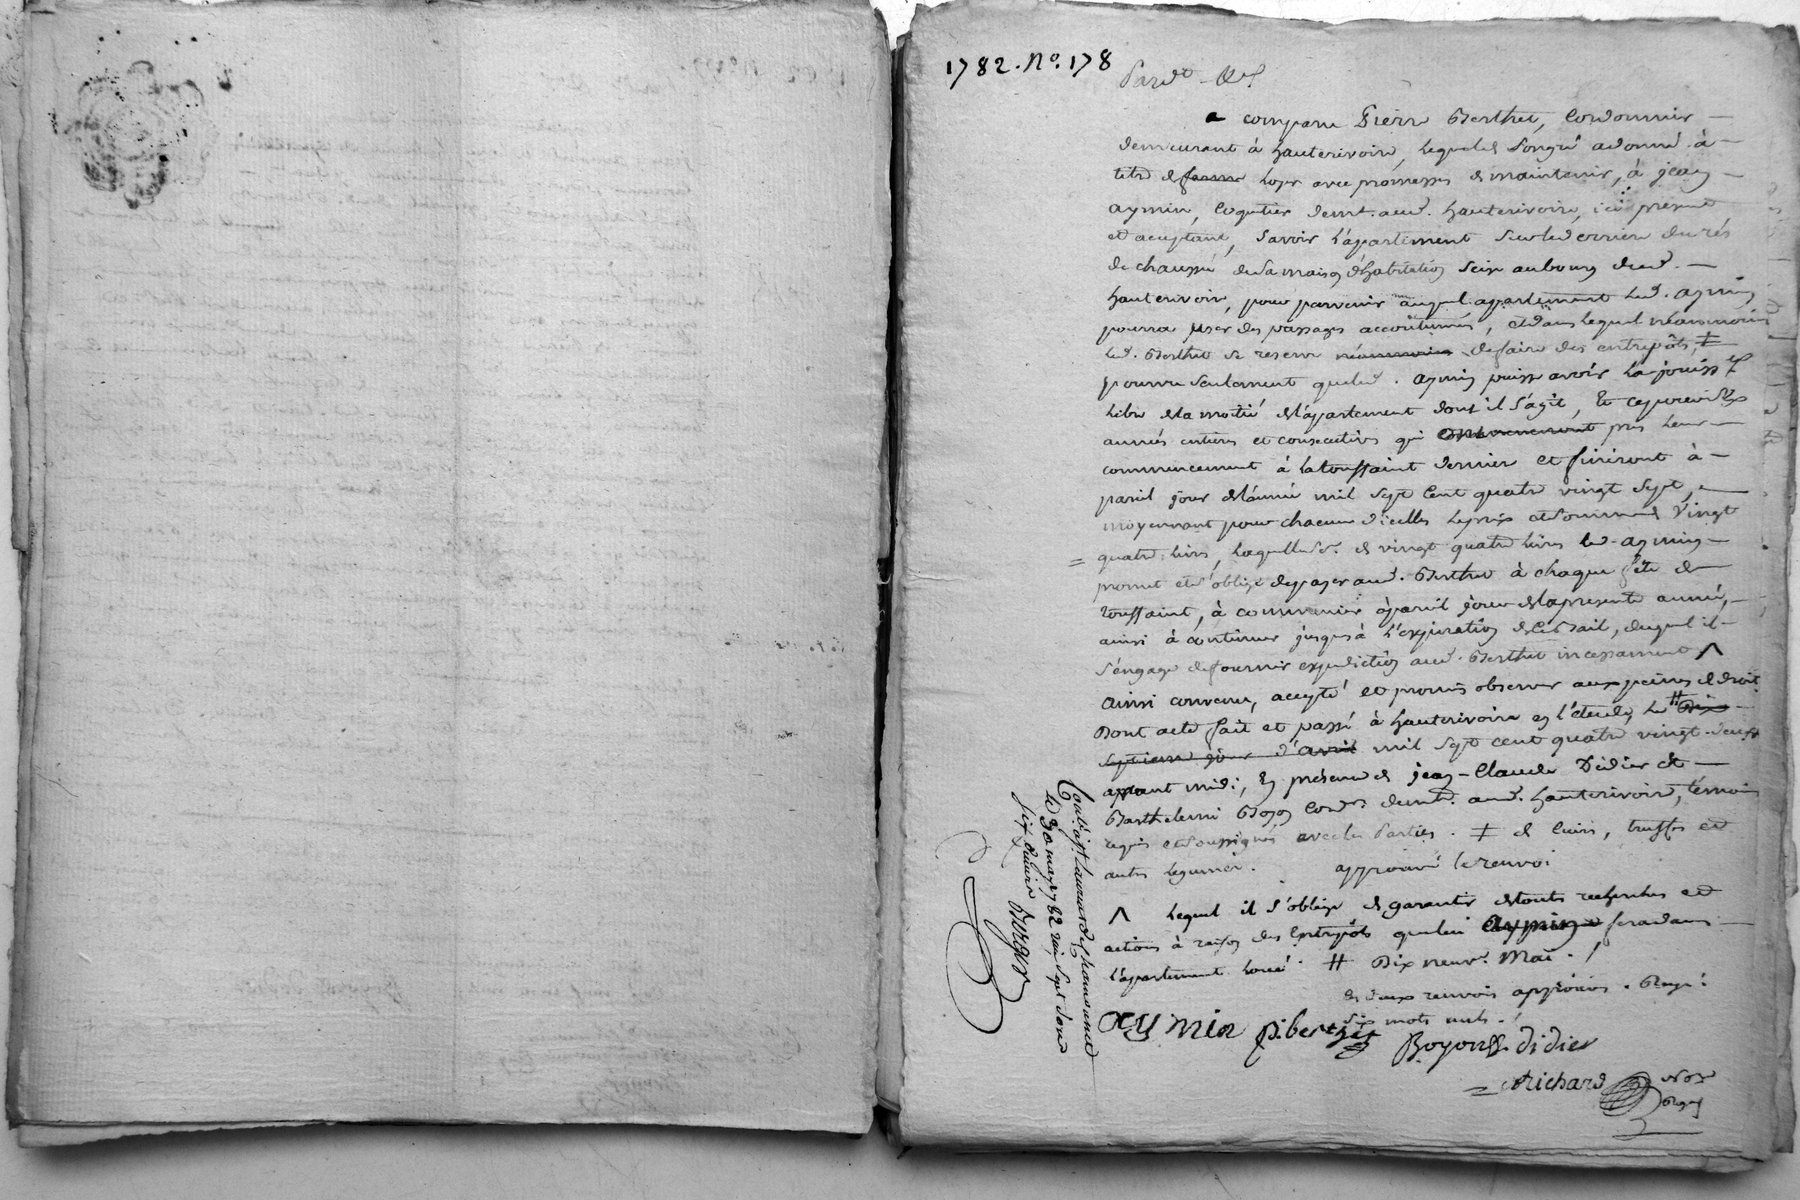 1782. N°. 178
Pard.t &c.
a comparu Pierre Berthet, Cordonnier
demeurant à hauterivoire, lequel de son gré a donné à
titre de ferme loyer avec promesses de maintenir, à jean
aymin, Coquetier demt. aud. hauterivoire, ici present
et acceptant, savoir l'apartement sur le derriere du rés
de chaussé de sa maison d'habitation Scise au bourg dud.
hauterivoire, pour parvenir auquel appartement led. aymin
pourra user des passages accoutumés, et dans lequel néanmoins
led. Berthet se reserve néanmoins de faire des entrepôts, ‡
pourvu seulement que led. aymin puisse avoir la jouiss.ce
libre de la moitié de l'appartement dont il s'agit, Et ce pour six
années entieres et consecutives qui ont pris leur
commencement à la toussaint dernier et finiront à
pareil jour de l'année mil sept cent quatre vingt sept,
moyennant pour chacune d'icelles le prix et somme de Vingt
quatre livres, laquelle so.e de vingt quatre livres led. aymin
promet et s'oblige de payer aud. Berthet à chaque fête de
toussaint, à commencer à pareil jour de la presente année,
ainsi à continuer jusques à l'expiration de ce Bail, duquel il
s'engage de fournir expedition aud. Berthet incessament ^
Ainsi convenu, accepté et promis observer aux peines de droit
Dont acte fait et passé à hauterivoire en l'étude, le # Dix
septieme jour d'avril mil sept cent quatre vingt-deux
avant midi, En présence de jean-Claude Didier et
Barthelemi Boyon Cord.r demt. aud. hauterivoire, témoins
requis et soussignés avec les Parties. ‡ de cuirs, truffes et
autres legumes. approuvé le renvoi
^ lequel il s'oblige de garantir de toutes recherches et
actions à raison des Entrepôts que lui aymin fera dans
l'apartement loué. # Dix neuv.e Mai.
les deux renvois approuvés. Rayé
six mots nuls.
aymin p. berthet Boyon Didier
Richard
Not.re
Royal
Con.lé à St Laurent de chamousset
le 30 may 1782 reçu sept sous
six deniers Burgur